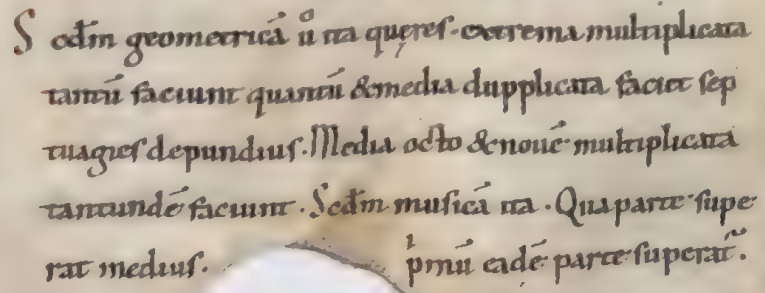 Scđm geometricā ů ita quęres. extrema multiplicata
tantū faciunt quantū & media dupplicata faciet sep
tuagies depundius. Media octo & nouē multiplicata
tantundē faciunt. Scđm musicā ita. Qua parte supe
rat medius. pmū eadē parte superat᷑.